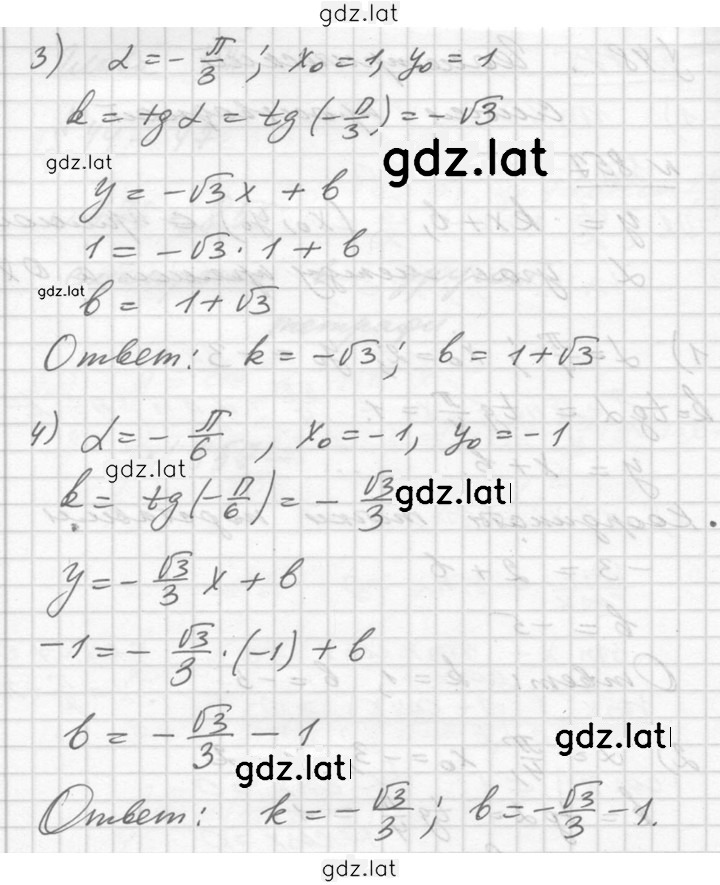 gdz.lat
3) α = -π/3; x₀ = 1, y₀ = 1
k = tg α = tg(-π/3) = -√3
gdz.lat
gdz.lat
y = -√3 x + b
1 = -√3 · 1 + b
gdz.lat
b = 1 + √3
Ответ: k = -√3; b = 1 + √3
4) α = -π/6, x₀ = -1, y₀ = -1
gdz.lat
k = tg(-π/6) = -√3/3
gdz.lat
y = -√3/3 x + b
-1 = -√3/3 · (-1) + b
b = -√3/3 - 1
gdz.lat
gdz.lat
Ответ: k = -√3/3; b = -√3/3 - 1.
gdz.lat